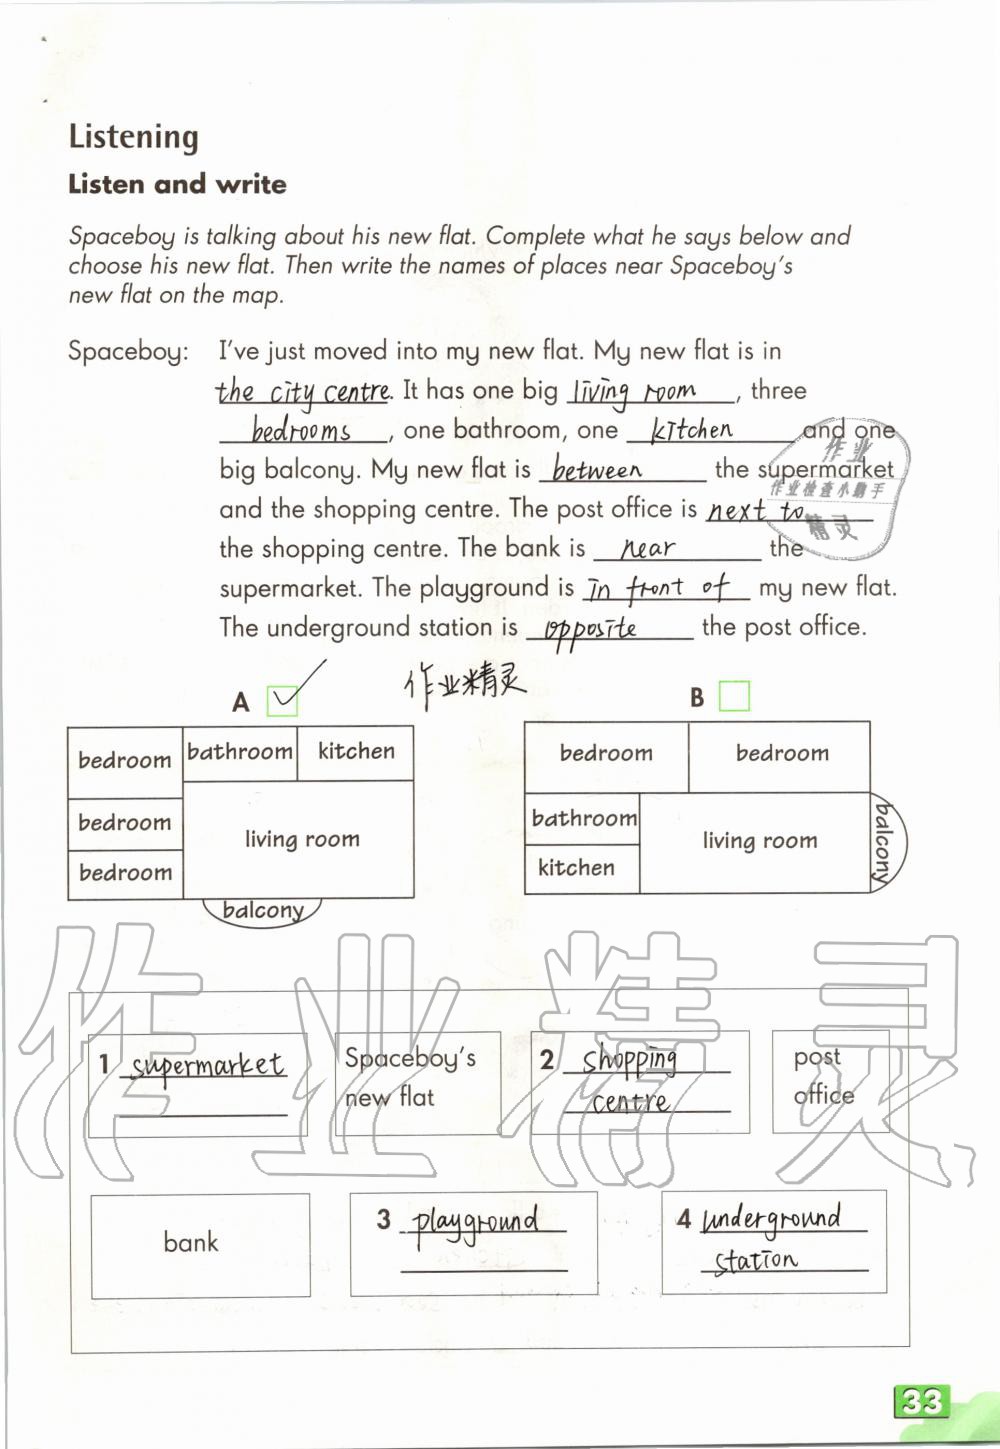 Listening
Listen and write
Spaceboy is talking about his new flat. Complete what he says below and
choose his new flat. Then write the names of places near Spaceboy's
new flat on the map.
Spaceboy: I've just moved into my new flat. My new flat is in
the city centre. It has one big living room, three
bedrooms, one bathroom, one kitchen and one
big balcony. My new flat is between the supermarket
and the shopping centre. The post office is next to
the shopping centre. The bank is near the
supermarket. The playground is in front of my new flat.
The underground station is opposite the post office.
作业
作业检查小助手
精灵
作业精灵
A
B
bedroom bathroom kitchen
bedroom
bedroom
living room
balcony
bedroom bedroom
bathroom
kitchen
living room
balcony
作业精灵
1 supermarket
Spaceboy's
new flat
2 shopping
centre
post
office
bank
3 playground
4 underground
station
33